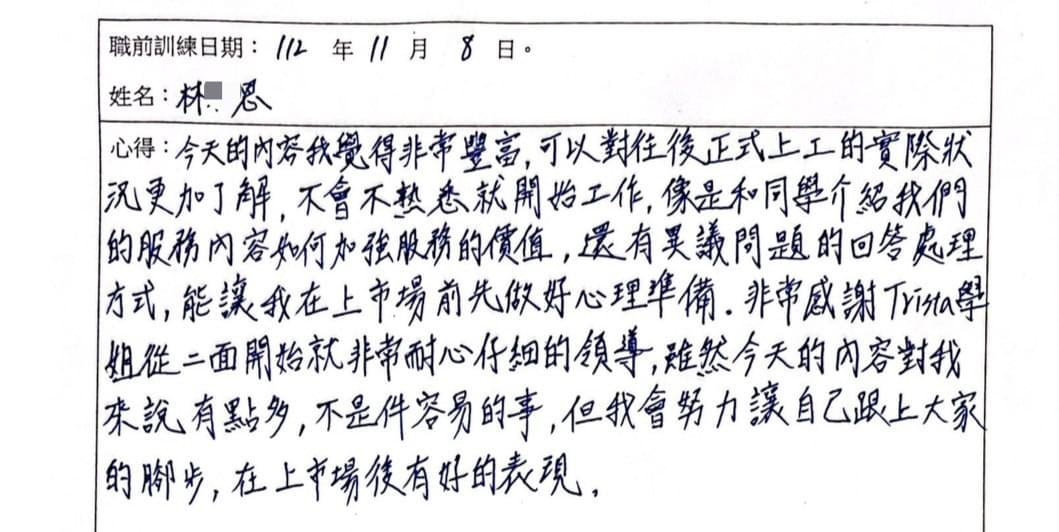 職前訓練日期：112 年 11 月 8 日。
姓名：林 恩
心得：今天的內容我覺得非常豐富，可以對往後正式上工的實際狀
況更加了解，不會不熟悉就開始工作，像是和同學介紹我們
的服務內容如何加強服務的價值，還有異議問題的回答處理
方式，能讓我在上市場前先做好心理準備．非常感謝Trista學
姐從二面開始就非常耐心仔細的領導，雖然今天的內容對我
來說有點多，不是件容易的事，但我會努力讓自己跟上大家
的腳步，在上市場後有好的表現．